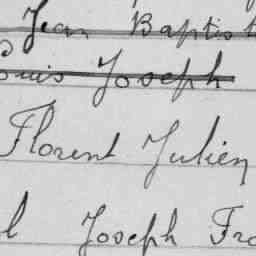 Jean Baptist
Louis Joseph
Florent Julien
l Joseph Fra